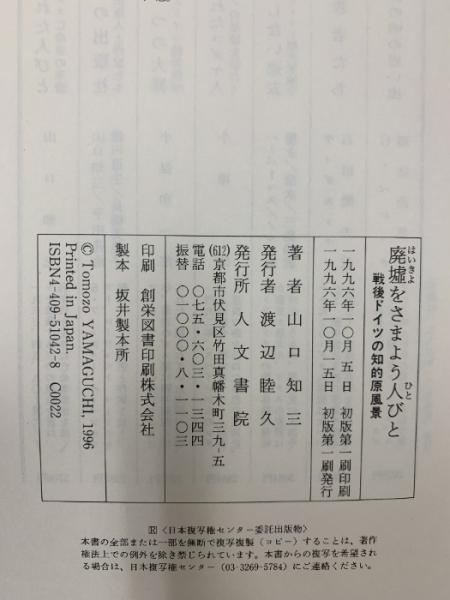 廃墟をさまよう人びと
はいきよ
ひと
戦後ドイツの知的原風景
一九九六年一〇月 五日 初版第一刷印刷
一九九六年一〇月一五日 初版第一刷発行
著者 山口知三
発行者 渡辺睦久
発行所 人文書院
(612)京都市伏見区竹田真幡木町三九-五
電話 〇七五・六〇三・一三四四
振替 〇一〇〇〇・八・一一〇三
印刷 創栄図書印刷株式会社
製本 坂井製本所
© Tomozo YAMAGUCHI, 1996
Printed in Japan.
ISBN4-409-51042-8 C0022
〈日本複写権センター委託出版物〉
本書の全部または一部を無断で複写複製(コピー)することは、著作
権法上での例外を除き禁じられています。本書からの複写を希望され
る場合は、日本複写権センター(03-3269-5784)にご連絡ください。